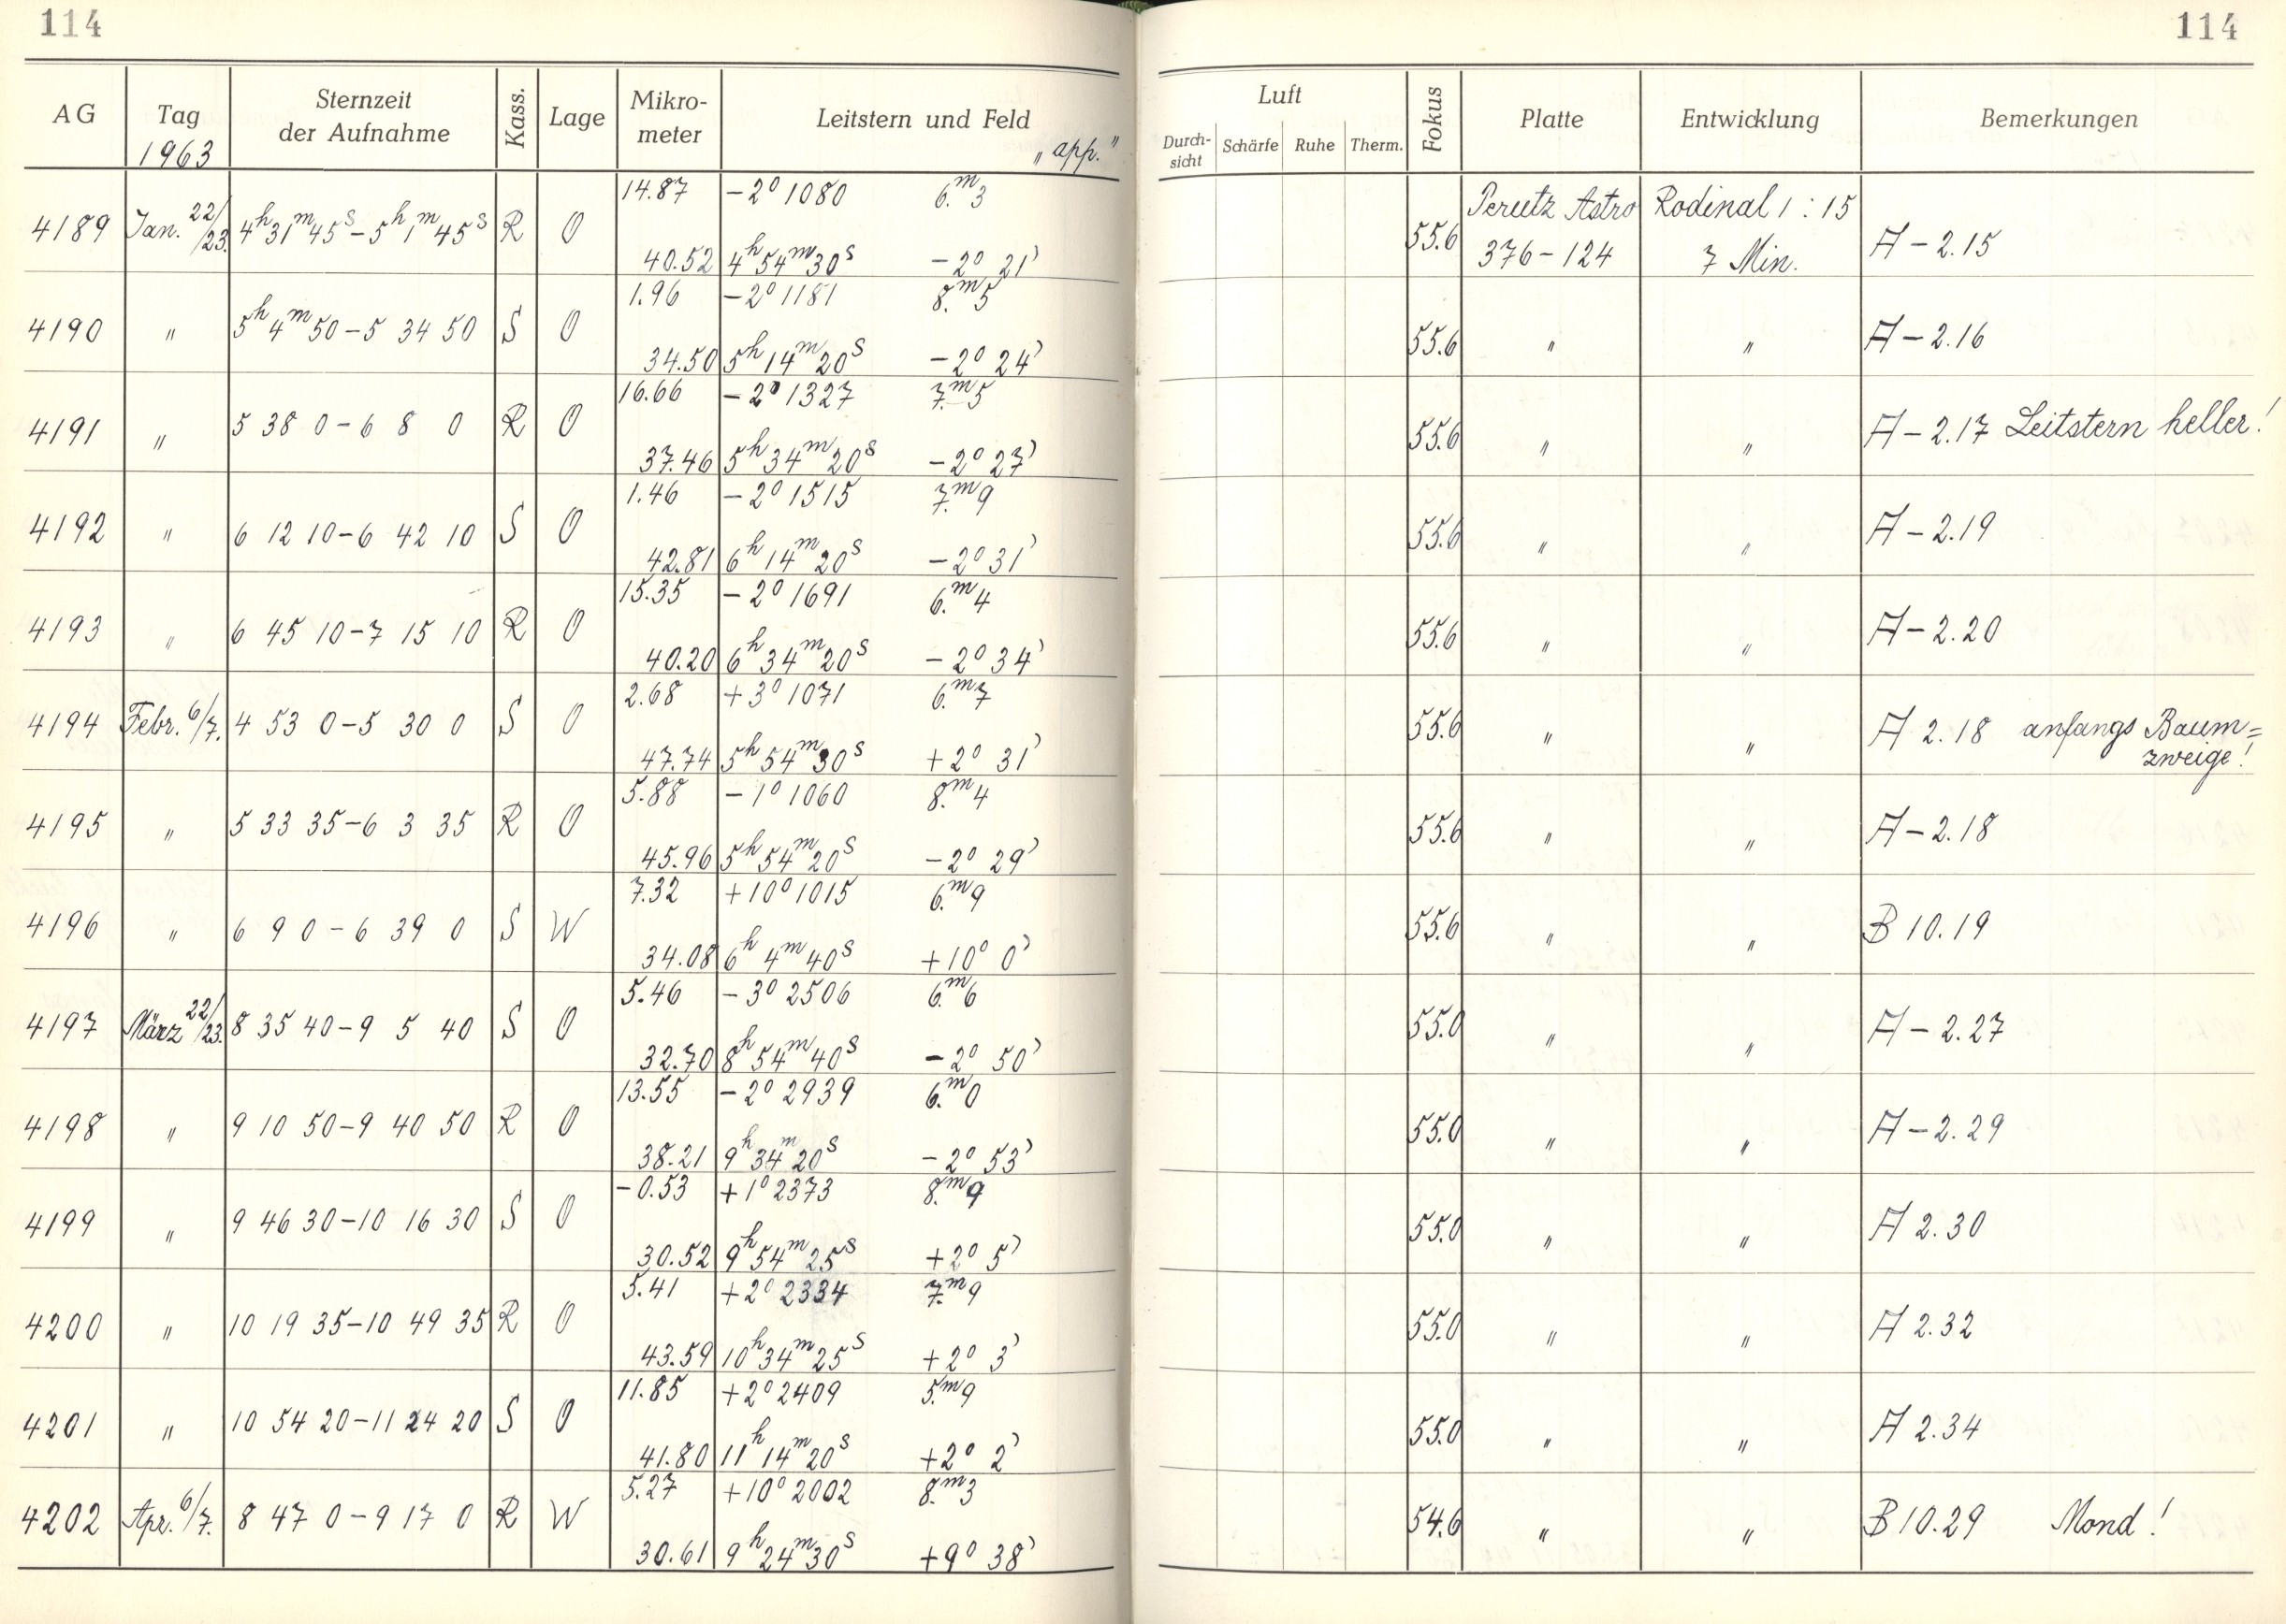 114 114
AG Tag Sternzeit der Aufnahme Kass. Lage Mikro-meter Leitstern und Feld Luft Durch-sicht Schärfe Ruhe Therm. Fokus Platte Entwicklung Bemerkungen
1963 „app."
14.87 -2° 1080 6.m3 Perutz Astro Rodinal 1:15
4189 Jan. 22/23. 4h31m45s-5h1m45s R O 55.6 A -2.15
40.52 4h54m30s -2° 21' 376-124 7 Min.
1.96 -2° 1181 8.m5
4190 " 5h4m50-5 34 50 S O 55.6 " " A -2.16
34.50 5h14m20s -2° 24'
16.66 -2° 1327 7.m5
4191 " 5 38 0-6 8 0 R O 55.6 " " A -2.17 Leitstern heller!
37.46 5h34m20s -2° 27'
1.46 -2° 1515 7.m9
4192 " 6 12 10-6 42 10 S O 55.6 " " A -2.19
42.81 6h14m20s -2° 31'
15.35 -2° 1691 6.m4
4193 " 6 45 10-7 15 10 R O 55.6 " " A -2.20
40.20 6h34m20s -2° 34'
2.68 +3° 1071 6.m7
4194 Febr. 6/7. 4 53 0-5 30 0 S O 55.6 " " A 2.18 anfangs Baum=
47.74 5h54m30s +2° 31' zweige!
5.88 -1° 1060 8.m4
4195 " 5 33 35-6 3 35 R O 55.6 " " A -2.18
45.96 5h54m20s -2° 29'
7.32 +10° 1015 6.m9
4196 " 6 9 0-6 39 0 S W 55.6 " " B 10.19
34.08 6h4m40s +10° 0'
5.46 -3° 2506 6.m6
4197 März 22/23. 8 35 40-9 5 40 S O 55.0 " " A -2.27
32.70 8h54m40s -2° 50'
13.55 -2° 2939 6.m0
4198 " 9 10 50-9 40 50 R O 55.0 " " A -2.29
38.21 9h34m20s -2° 53'
-0.53 +1° 2373 8.m9
4199 " 9 46 30-10 16 30 S O 55.0 " " A 2.30
30.52 9h54m25s +2° 5'
5.41 +2° 2334 7.m9
4200 " 10 19 35-10 49 35 R O 55.0 " " A 2.32
43.59 10h34m25s +2° 3'
11.85 +2° 2409 5.m9
4201 " 10 54 20-11 24 20 S O 55.0 " " A 2.34
41.80 11h14m20s +2° 2'
5.27 +10° 2002 8.m3
4202 Apr. 6/7. 8 47 0-9 17 0 R W 54.6 " " B 10.29 Mond!
30.61 9h24m30s +9° 38'